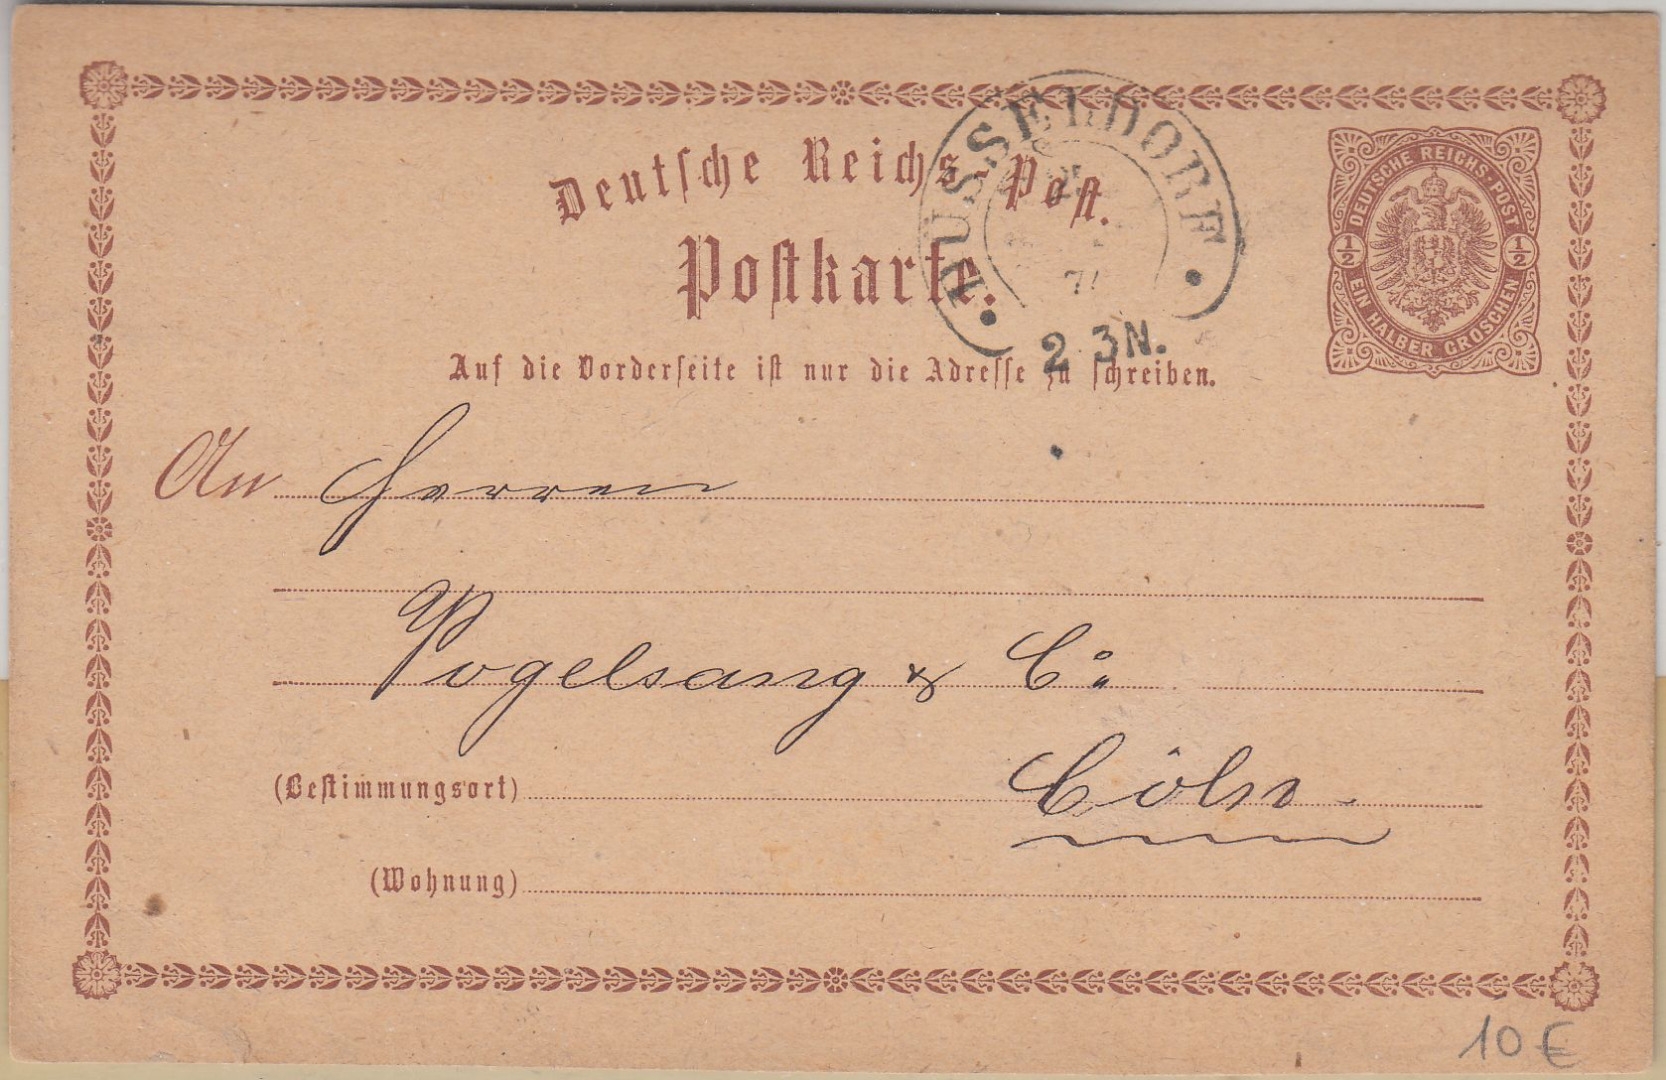 Deutsche Reichs-Post.
Postkarte.
DÜSSELDORF
2 3N.
DEUTSCHE REICHS-POST
1/2 1/2
EIN HALBER GROSCHEN
Auf die Vorderseite ist nur die Adresse zu schreiben.
An Herren
Vogelsang & Co
(Bestimmungsort) Cöln
(Wohnung)
10 €